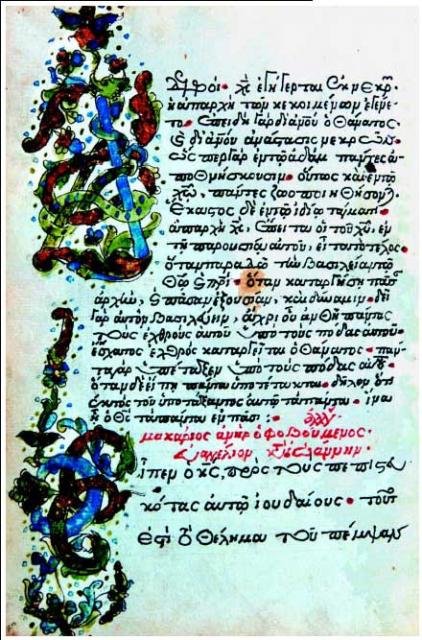 δφοὶ · χς ἐγήγερται ἐκ νεκρ
καὶ ἀπαρχὴ τῶν κεκοιμένων ἐγένε
το · ἐπειδὴ γὰρ δι ἀνου ὁ θάνατος ·
ϛ δι ἀνου ἀνάστασις νεκρῶν ·
ὥσπερ γὰρ ἐν τῷ ἀδὰμ πάντες ἀ
ποθνήσκουσιν · οὕτως καὶ ἐν τῷ
χῶ, πάντες ζωοποιηθήσον
ἕκαστος δὲ ἐν τῷ ἰδίῳ τάγματι ·
ἀπαρχὴ χς, ἔπειτα οἱ τοῦ χυ, ἐν
τῇ παρουσίᾳ αὐτοῦ, εἶτα τὸ τέλος ·
ὅταν παραδῷ τὴν βασιλείαν τῷ
θῶ ϛ πρι · ὅταν καταργήσῃ πᾶσ
ἀρχὴν, ϛ πᾶσαν ἐξουσίαν, καὶ δύναμιν · δεῖ
γὰρ αὐτὸν βασιλεύειν, ἄχρις οὗ ἂν θῇ πάντας
τοὺς ἐχθροὺς αὐτοῦ ὑπὸ τοὺς πόδας αὐτοῦ ·
ἔσχατος ἐχθρὸς καταργεῖται ὁ θάνατος · πάν
τα γὰρ ὑπέταξεν ὑπὸ τοὺς πόδας αὐτοῦ ·
ὅταν δὲ πάντα ὑποτέτακται · δῆλον ὅτι
ἐκτὸς τοῦ ὑποτάξαντος αὐτῷ τὰ πάντα · ἵνα
ᾖ ὁ θς τὰ πάντα ἐν πᾶσι :
μακάριος ἀνὴρ ὁ φοβούμενος ·
εὐαγγέλιον ἰωάννην ·
ἶπεν ὁ κς, πρὸς τοὺς πεπιστευ
κότας αὐτῷ ἰουδαίους · τοῦτ
ἐστὶ θέλημα τοῦ πέμψαν